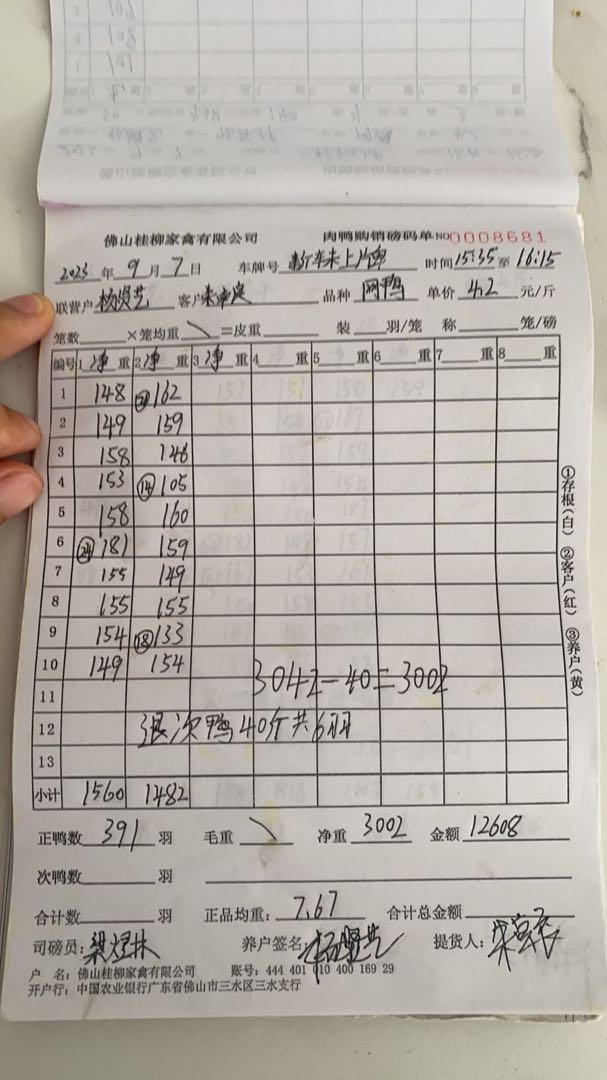 佛山桂柳家禽有限公司 肉鸭购销磅码单 NO 0008681
2023 年 9 月 7 日 车牌号 新车未上牌 时间 15:35 至 16:15
联营户 杨贤芝 客户 品种 网鸭 单价 4.2 元/斤
笼数 ×笼均重 \ =皮重 装 羽/笼 称 笼/磅
编号 1 净 重 2 净 重 3 净 重 4 重 5 重 6 重 7 重 8 重
1 148 162
2 149 159
3 158 146
4 153 ⑭ 105
5 158 160
6 181 159
7 155 149
8 155 155
9 154 ⑱ 133
10 149 154
3042-40=3002
11
12 退次鸭40斤共6羽
13
小计 1560 1482
①存根(白) ②客户(红) ③养户(黄)
正鸭数 391 羽 毛重 \ 净重 3002 金额 12608
次鸭数 羽
合计数 羽 正品均重: 7.67 合计总金额
司磅员: 梁煜林 养户签名: 杨贤芝 提货人:
户 名: 佛山桂柳家禽有限公司 账号: 444 401 010 400 169 29
开户行: 中国农业银行广东省佛山市三水区三水支行